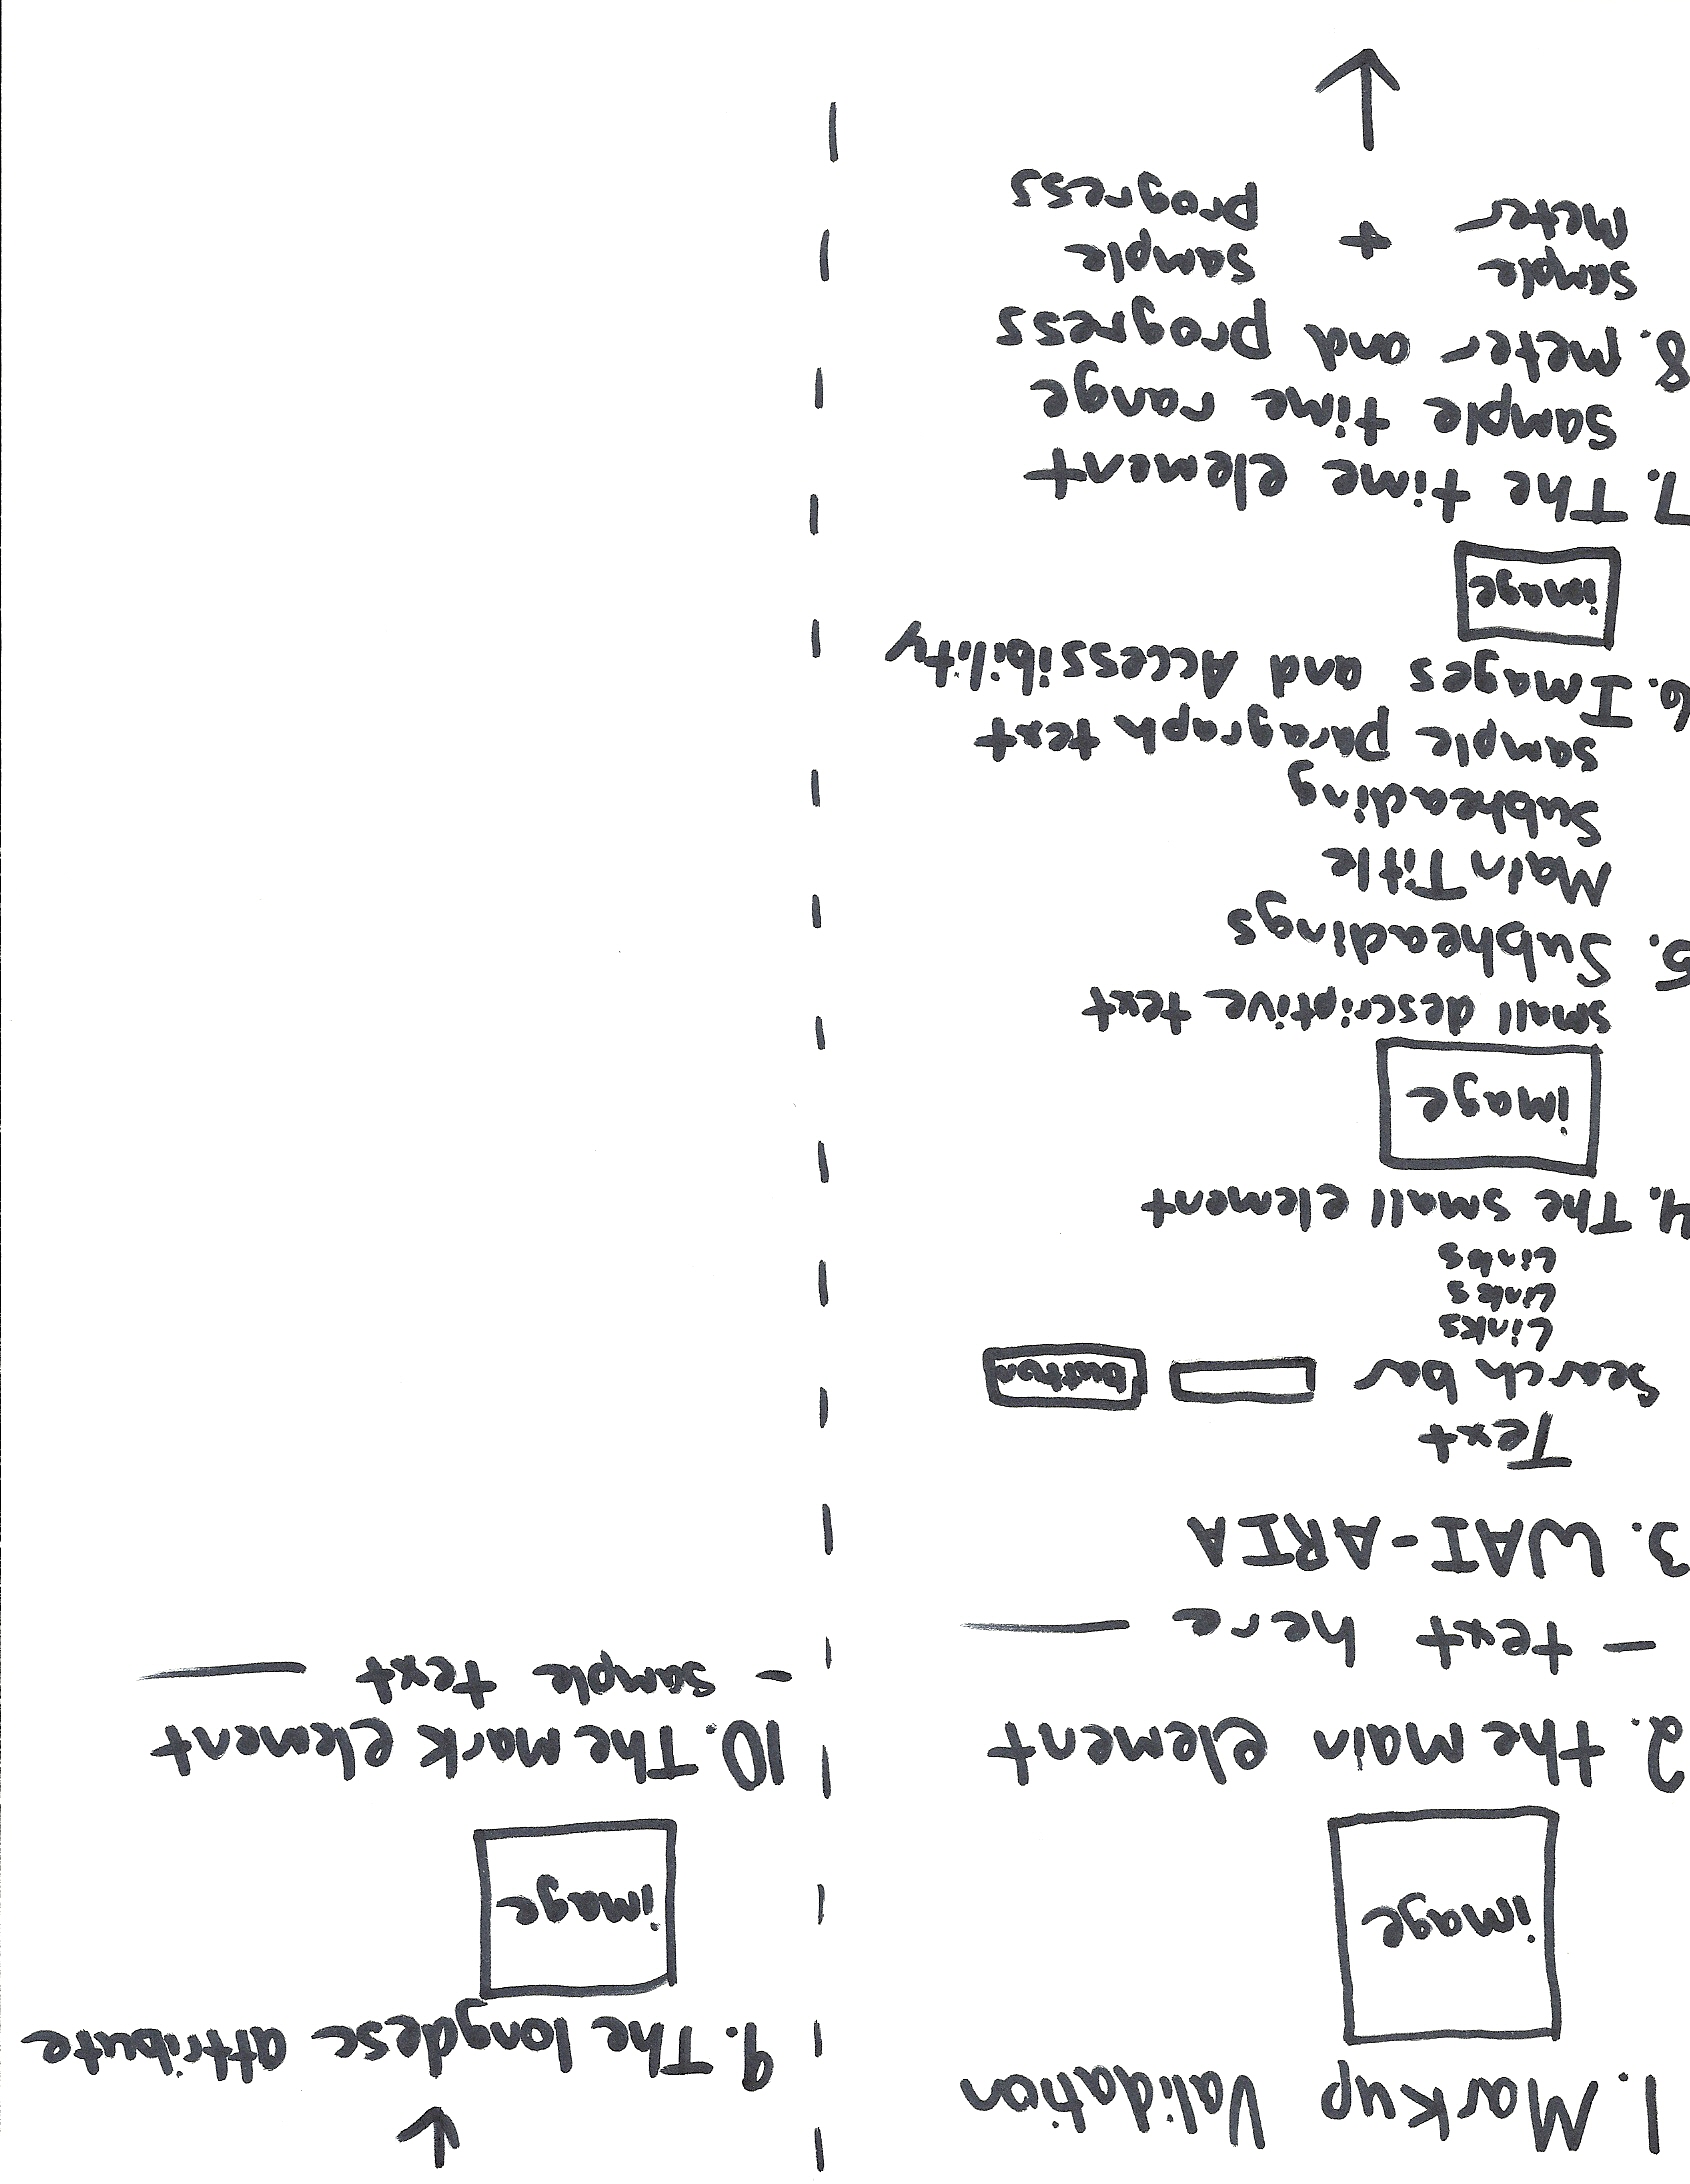 1. Markup Validation
image
2. the main element
- text here
3. WAI-ARIA
Text
Search bar button
Links
Links
Links
4. The small element
image
small descriptive text
5. Subheadings
Main Title
Subheading
sample paragraph text
6. Images and Accessibility
image
7. The time element
sample time range
8. meter and progress
sample meter + sample progress
9. The longdesc attribute
image
10. The mark element
- sample text